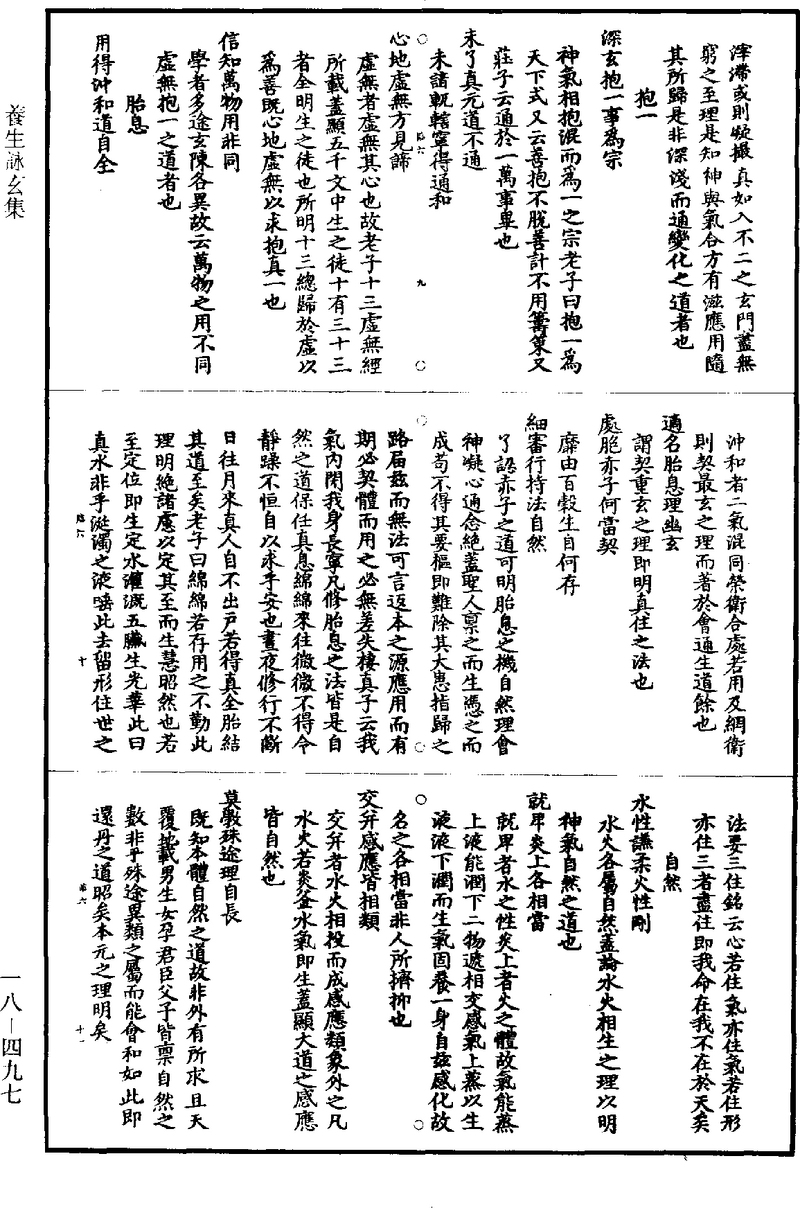 滓滯或則凝攝真如入不二之玄門蓋無
窮之至理是知神與氣合方有滋應用隨
其所歸是非深淺而通變化之道者也
抱一
深玄抱一事為宗
神氣相抱混而為一之宗老子曰抱一為
天下式又云善抱不脫善計不用籌策又
莊子云通於一萬事畢也
未了真元道不通
未諳軏轄寧得通和
心地虛無方見諦
虛無者虛無其心也故老子十三虛無經
所載蓋顯五千文中生之徒十有三十三
者全明生之徒也所明十三總歸於虛以
為善既心地虛無以求抱真一也
信知萬物用非同
學者多途玄陳各異故云萬物之用不同
虛無抱一之道者也
胎息
用得沖和道自全
沖和者二氣混同榮衛合處若用及綢衛
則契最玄之理而著於會通生道餘也
適名胎息理幽玄
謂契重玄之理即明真住之法也
處胞赤子何當契
糜由百穀生自何存
細審行持法自然
了認赤子之道可明胎息之機自然理會
神凝心通念絕蓋聖人禀之而生憑之而
成苟不得其要樞即難除其大患指歸之
路届茲而無法可言返本之源應用而有
期必契體而用之必無差失棲真子云我
氣內閑我身長寧凡修胎息之法皆是自
然之道保任真息綿綿來往微微不得令
靜躁不恒自以求平安也晝夜修行不斷
日往月來真人自不出戶若得真全胎結
其道至矣老子曰綿綿若存用之不勤此
理明絕諸慮以定其至而生慧昭然也若
至定位即生定水灌溉五臟生光華此曰
真水非乎涎濁之液嚥此去留形住世之
法要三住銘云心若住氣亦住氣若住形
亦住三者盡住即我命在我不在於天矣
自然
水性謙柔火性剛
水火各屬自然蓋論水火相生之理以明
神氣自然之道也
就卑炎上各相當
就卑者水之性炎上者火之體故氣能蒸
上液能潤下二物遞相交感氣上蒸以生
液液下潤而生氣固養一身自茲感化故
名之各相當非人所擠抑也
交并感應皆相類
交并者水火相投而成感應類象外之凡
水火若炎釜水氣即生蓋顯大道之感應
皆自然也
莫斆殊途理自長
既知本體自然之道故非外有所求且天
覆地載男生女孕君臣父子皆禀自然之
數非乎殊途異類之屬而能會和如此即
還丹之道昭矣本元之理明矣
臨六
九
臨六
十
臨六
十一
養生詠玄集
一八－四九七